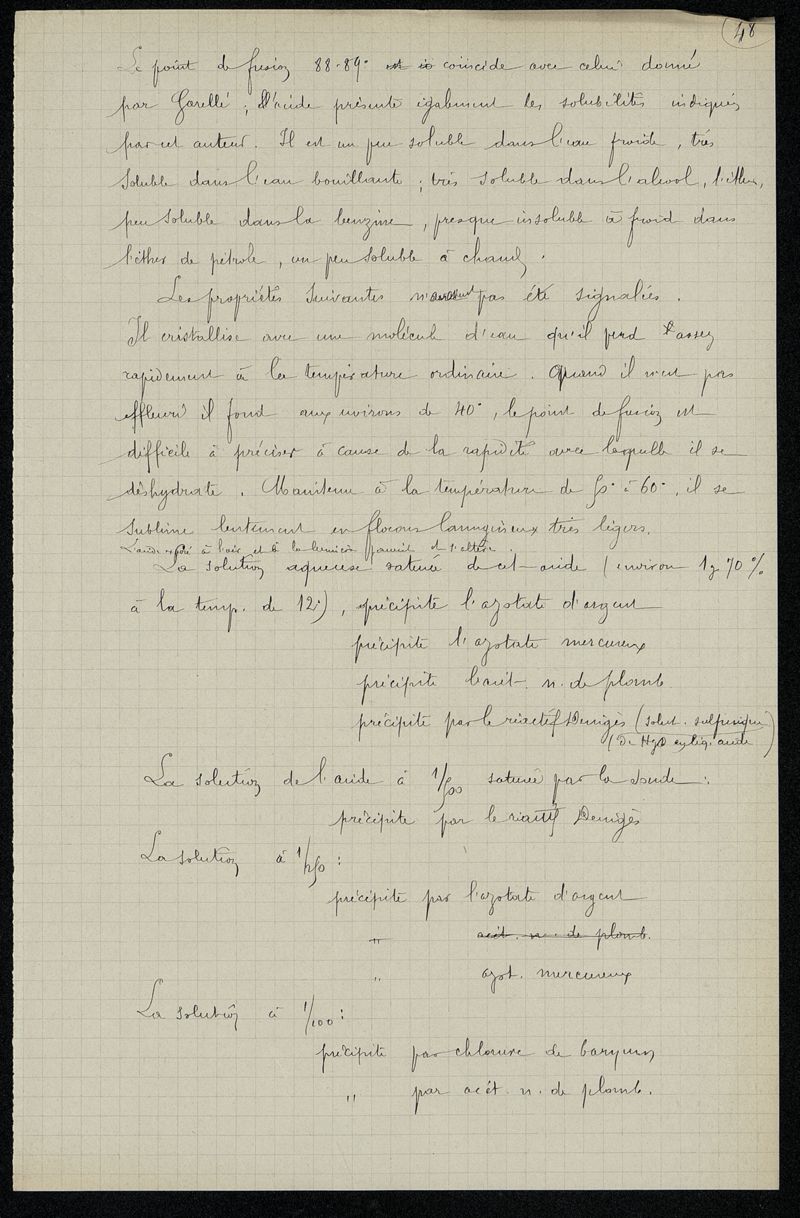 48
Le point de fusion 88-89° coïncide avec celui donné
par Garelli ; l'acide présente également les solubilités indiqués
par cet auteur. Il est un peu soluble dans l'eau froide, très
soluble dans l'eau bouillante ; très soluble dans l'alcool, l'éther,
peu soluble dans la benzine, presque insoluble à froid dans
l'éther de pétrole, un peu soluble à chaud.
Les propriétés suivantes n'avaient pas été signalées.
Il cristallise avec une molécule d'eau qu'il perd assez
rapidement à la température ordinaire. Quand il n'est pas
effleuri il fond aux environs de 40°, le point de fusion est
difficile à préciser à cause de la rapidité avec laquelle il se
déshydrate. Maintenu à la température de 50° à 60°, il se
sublime lentement en flocons lanugineux très légers.
L'acide exposé à l'air et à la lumière jaunit et s'altère.
La solution aqueuse saturée de cet acide (environ 1g 70 %
à la temp. de 12°), précipite l'azotate d'argent
précipite l'azotate mercureux
précipite l'acét. n. de plomb
précipite par le réactif Denigès (solut. sulfurique
(de HgO
La solution de l'acide à 1/500 saturée par la soude :
précipite par le réactif Denigès
La solution à 1/250 :
précipite par l'azotate d'argent
" acét. n. de plomb.
" azot. mercureux
La solution à 1/100 :
précipite par chlorure de baryum
" par acét. n. de plomb.